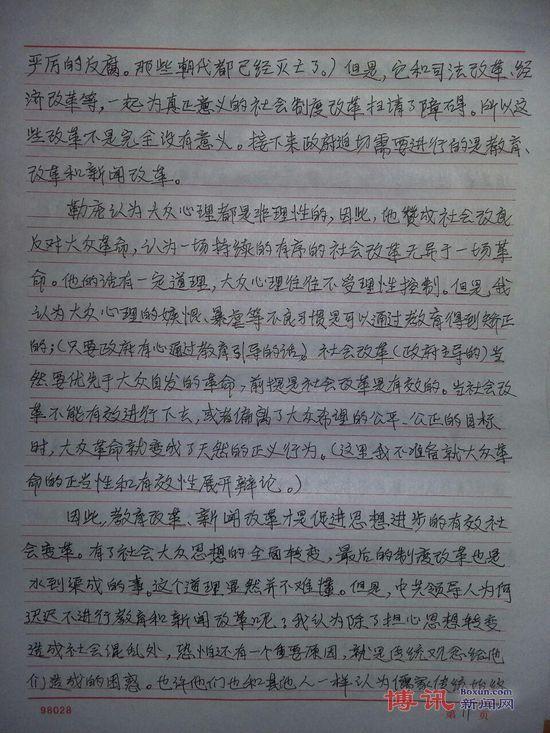 乎厉的反腐。那些朝代都已经灭亡了。）但是，它和司法改革、经
济改革等，一起为真正意义的社会制度改革扫清了障碍。所以这
些改革不是完全没有意义。接下来政府迫切需要进行的是教育、
改革和新闻改革。
勒庞认为大众心理都是非理性的，因此，他赞成社会改良
反对大众革命，认为一场持续的有序的社会改革无异于一场革
命。他的话有一定道理，大众心理往往不受理性控制。但是，我
认为大众心理的嫉恨、暴虐等不良习惯是可以通过教育得到矫正
的；（只要政府有心通过教育引导的话）。社会改革（政府主导的）当
然要优先于大众自发的革命，前提是社会改革是有效的。当社会改
革不能有效进行下去，或者偏离了大众希望的公平、公正的目标
时，大众革命就变成了天然的正义行为。（这里我不准备就大众革
命的正当性和有效性展开辩论。）
因此，教育改革、新闻改革才是促进思想进步的有效社
会变革。有了社会大众思想的全面转变，最后的制度改革也是
水到渠成的事。这个道理显然并不难懂。但是，中共领导人为何
迟迟不进行教育和新闻改革呢？我认为除了担心思想转变
造成社会混乱外，恐怕还有一个重要原因，就是传统观念给他
们造成的困惑。也许他们也和其他人一样认为儒家传统始终
98028
第 11 页
博讯 Boxun.com
新闻网